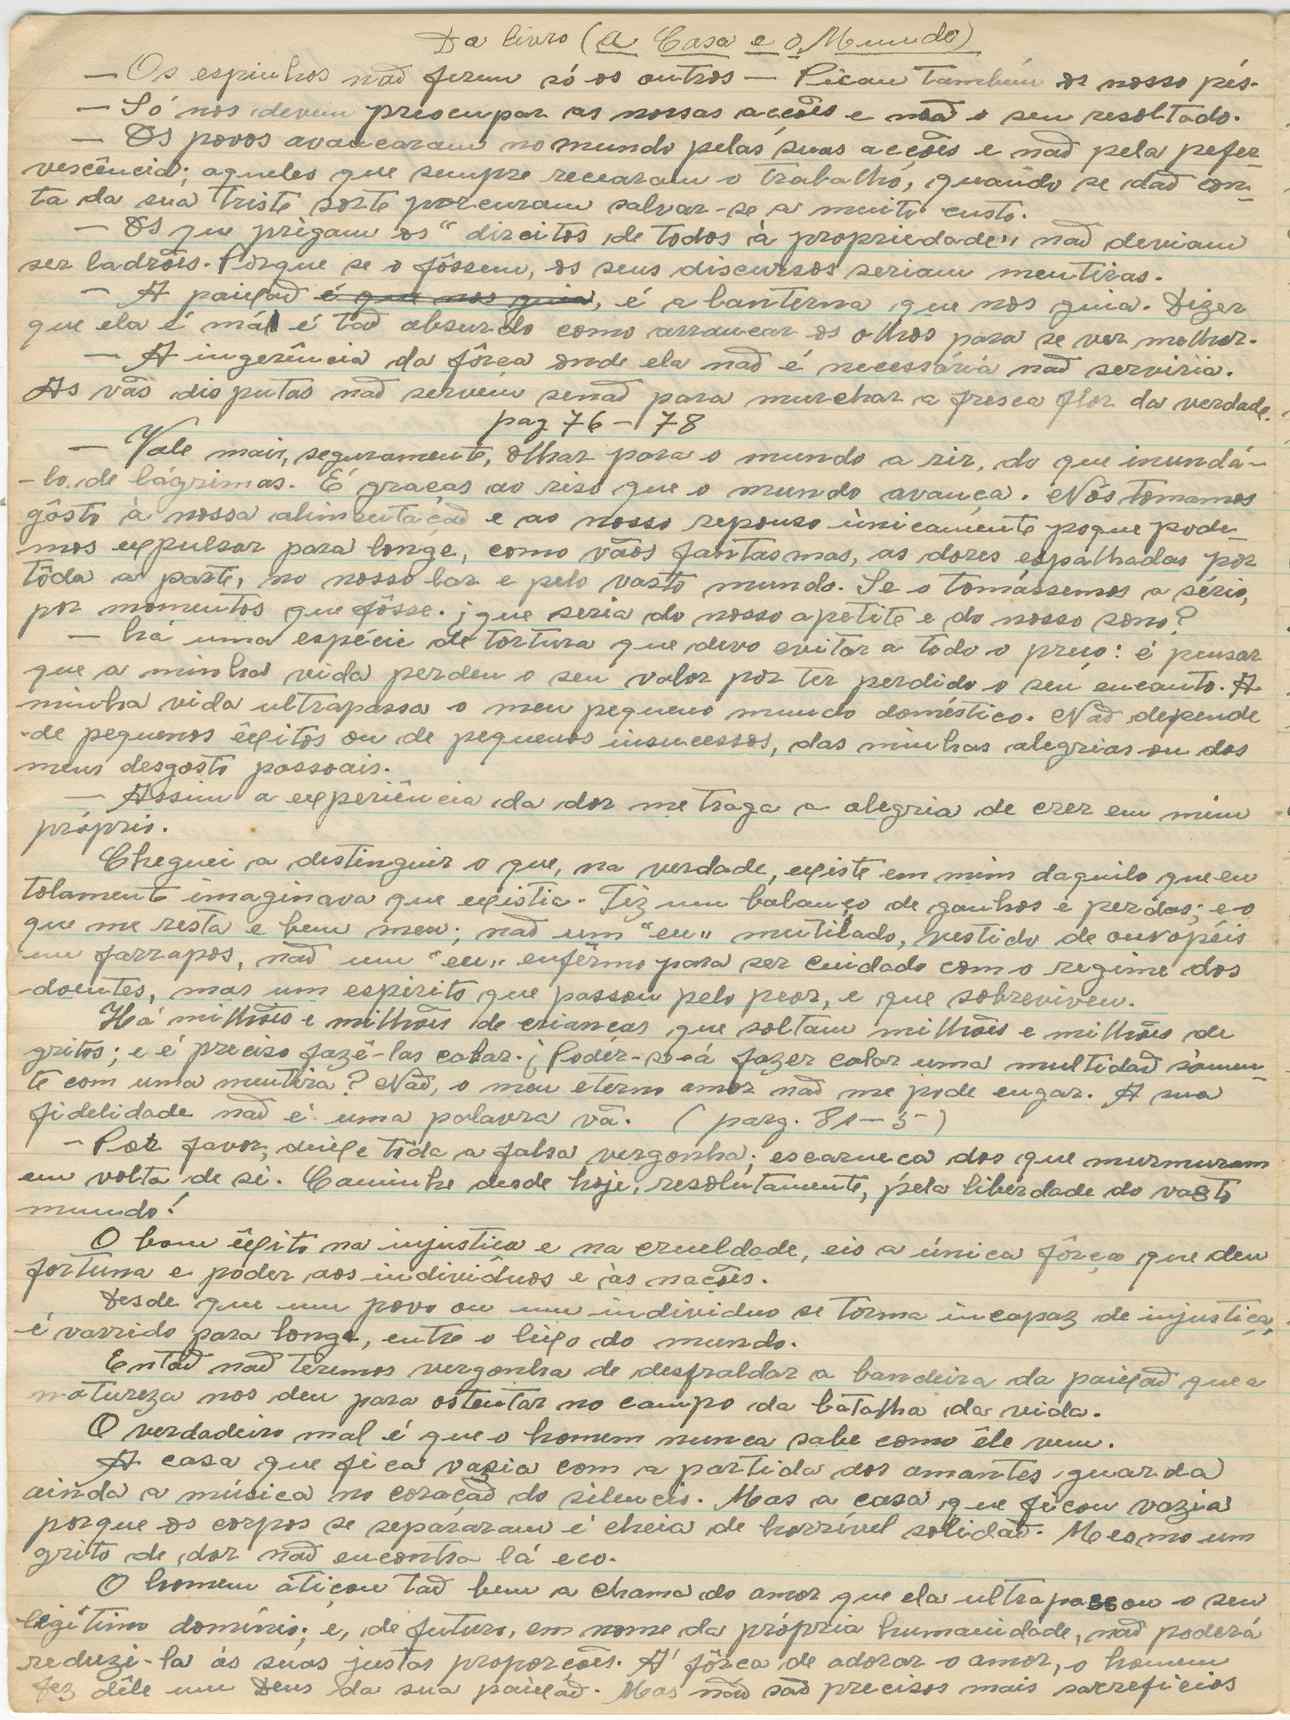 Do livro (A Casa e o Mundo)
— Os espinhos não ferem só os outros — Picam também os nosso pés.
— Só nos devem preocupar as nossas acções e noã o seu resoltado.
— Os povos avançaram no mundo pelas suas acções e não pela pefer
vescência; aqueles que sempre recearam o trabalho, quando se dão con-
ta da sua triste sorte porcuram salvar-se a muito custo.
— Os que prègam os "direitos de todos à propriedade", não deviam
ser ladrões. Porque se o fôssem, os seus discursos seriam mentiras.
— A paixão é que nos guia, é a lanterna que nos guia. Dizer
que ela é má é tão absurdo como arrancar os olhos para se ver melhor.
— A ingerência da fôrça onde ela não é necessária não serviria.
As vãs disputas não servem senão para murchar a fresca flor da verdade.
pag 76 — 78
— Vale mais, seguramente, olhar para o mundo a rir, do que inundá-
-lo de lágrimas. É graças ao riso que o mundo avança. Nós tomamos
gôsto à nossa alimentação e ao nosso repouso ùnicamente poque pode
mos expulsar para longe, como vãos fantasmas, as dores espalhadas por
tôda a parte, no nosso lar e pelo vasto mundo. Se o tomássemos a sério,
por momentos que fôsse. ¿que seria do nosso apetite e do nosso sono?
— há uma espécie de tortura que devo evitar a todo o preço: é pensar
que a minha vida perdeu o seu valor por ter perdido o seu encanto. A
minha vida ultrapassa o meu pequeno mundo doméstico. Não depende
de pequenos êxitos ou de pequenos insucessos, das minhas alegrias ou dos
meus desgosto possoais.
— Assim a experiência da dor me traga a alegria de crer em mim
próprio.
Cheguei a distinguir o que, na verdade, existe em mim daquilo que eu
tolamente imaginava que existia. Fiz um balanço de ganhos e perdas; e o
que me resta é bem meu; não um "eu" mutilado, vestido de ouropéis
em farrapos, não um "eu" enfêrmo para ser cuidado com o regime dos
doentes, mas um espírito que passou pelo peor, e que sobreviveu.
Há milhões e milhões de crianças que soltam milhões e milhões de
gritos; e é preciso fazê-las calar. ¿Poder-se-á fazer calar uma multidão sòmen-
te com uma mentira? Não, o meu eterno amor não me pode engar. A sua
fidelidade não é uma palavra vã. ( parg. 81 — 5 )
— Por favor, deixe tôda a falsa vergonha; escarneça dos que murmuram
em volta de si. Caminhe desde hoje, resolutamente, pela liberdade do vasto
mundo!
O bom êxito na injustiça e na crueldade, eis a única fôrça que deu
fortuna e poder aos indivíduos e às nações.
Desde que um povo ou um indivíduo se torna incapaz de injustiça,
é varrido para longe, entre o lixo do mundo.
Então não teremos vergonha de desfraldar a bandeira da paixão que a
natureza nos deu para ostentar no campo da batalha da vida.
O verdadeiro mal é que o homem nunca sabe como êle vem.
A casa que fica vazia com a partida dos amantes guarda
ainda a música no coração do silencio. Mas a casa que ficou vazia
porque os corpos se separaram é cheia de horrível solidão. Mesmo um
grito de dor não encontra lá eco.
O homem atiçou tão bem a chama do amor que ela ultrapassou o seu
legítimo domínio; e, de futuro, em nome da própria humanidade, não poderá
reduzi-la ás suas justas proporções. À fôrça de adorar o amor, o homem
fez dêle um Deus da sua paixão. Mas não são precisos mais sacreficios